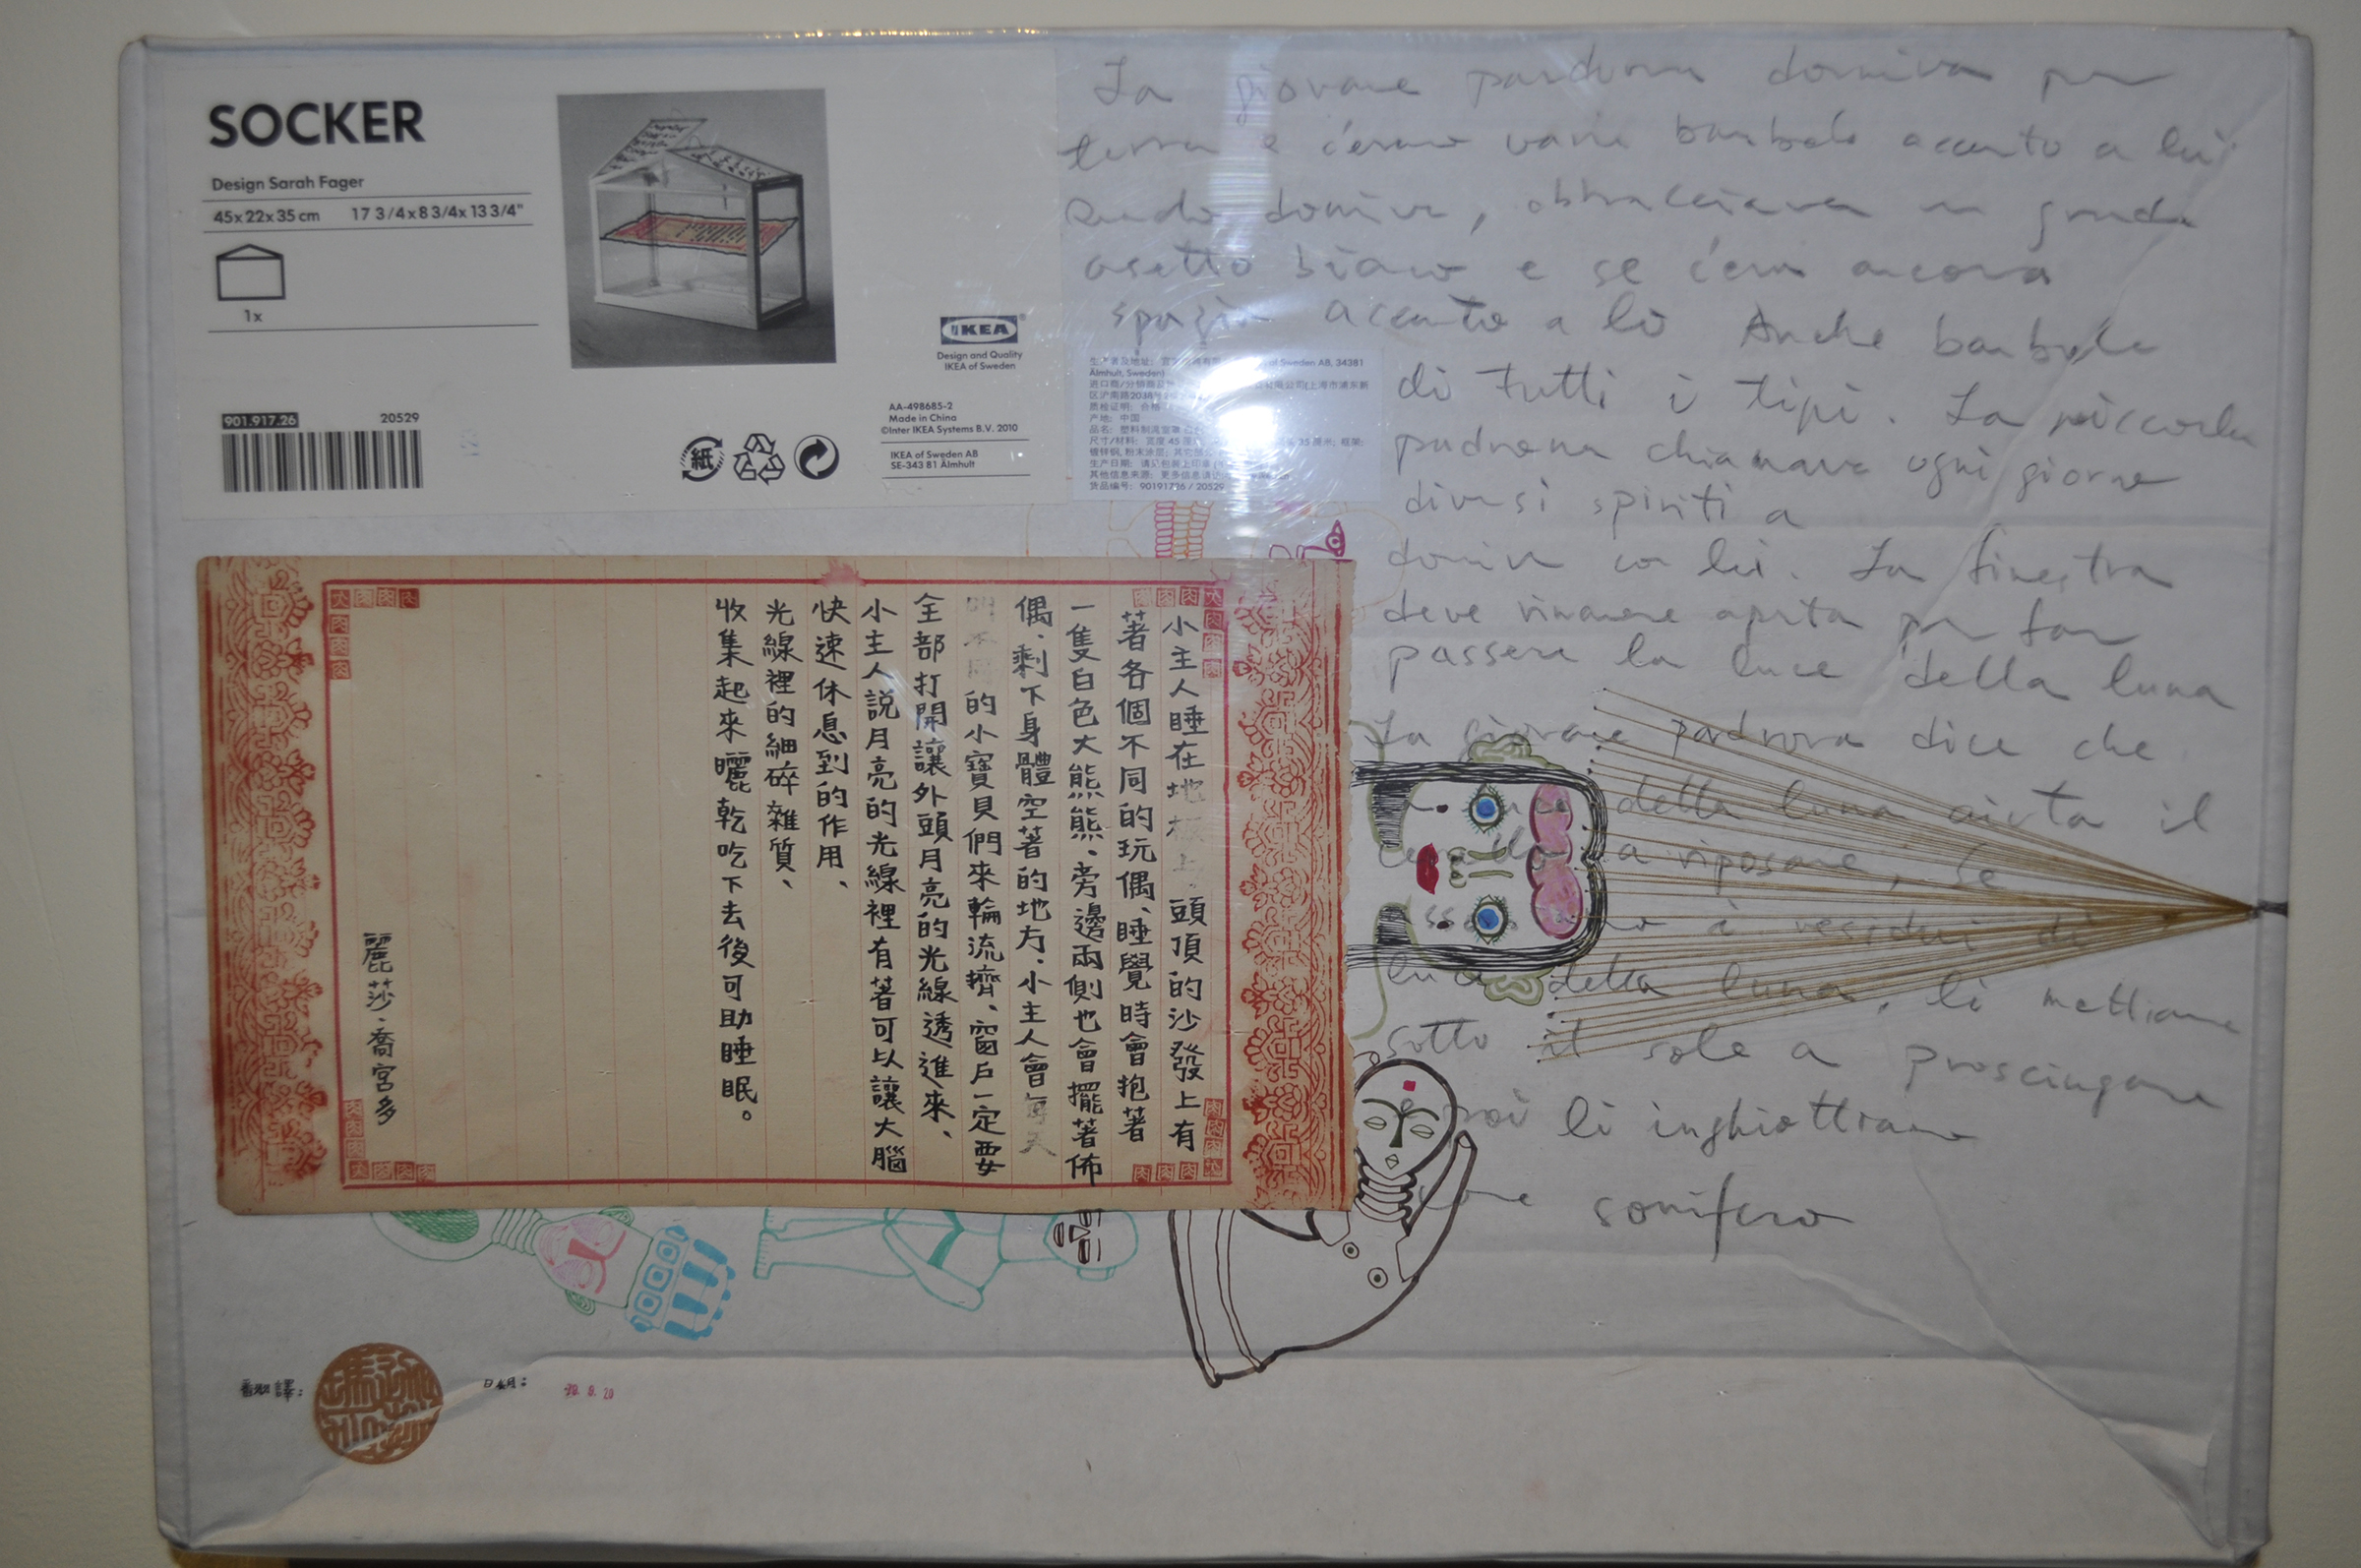 SOCKER
Design Sarah Fager
45x22x35 cm 17 3/4x8 3/4x 13 3/4"
1x
IKEA
Design and Quality
IKEA of Sweden
901.917.26 20529
紙
AA-498685-2
Made in China
©Inter IKEA Systems B.V. 2010
IKEA of Sweden AB
SE-343 81 Älmhult
生产者及地址: of Sweden AB, 34381
Älmhult, Sweden)
质检证明: 合格
产地: 中国
货品编号: 90191726 / 20529
La giovane padrona dormiva per
terra e c'erano varie bambole accanto a lei
Quando dormiva, abbracciava un grande
orsetto bianco e se c'era ancora
spazio accanto a lei Anche bambole
di tutti i tipi. La piccola
padrona chiamava ogni giorno
diversi spiriti a
dormire con lei. La finestra
deve rimanere aperta per far
passare la luce della luna
La giovane padrona dice che
luce della luna aiuta il
a riposare, Se
i residui di
luce della luna, li mettiamo
sotto il sole a prosciugare
poi li inghiottiamo
come sonnifero
小主人睡在地板上、頭頂的沙發上有
著各個不同的玩偶、睡覺時會抱著
一隻白色大熊熊、旁邊兩側也會擺著佈
偶、剩下身體空著的地方、小主人會每天
的小寶貝們來輪流擠、窗戶一定要
全部打開讓外頭月亮的光線透進來、
小主人說月亮的光線裡有著可以讓大腦
快速休息到的作用、
光線裡的細碎雜質、
收集起來曬乾吃下去後可助睡眠。
麗莎·喬宮多
翻譯:
日期: